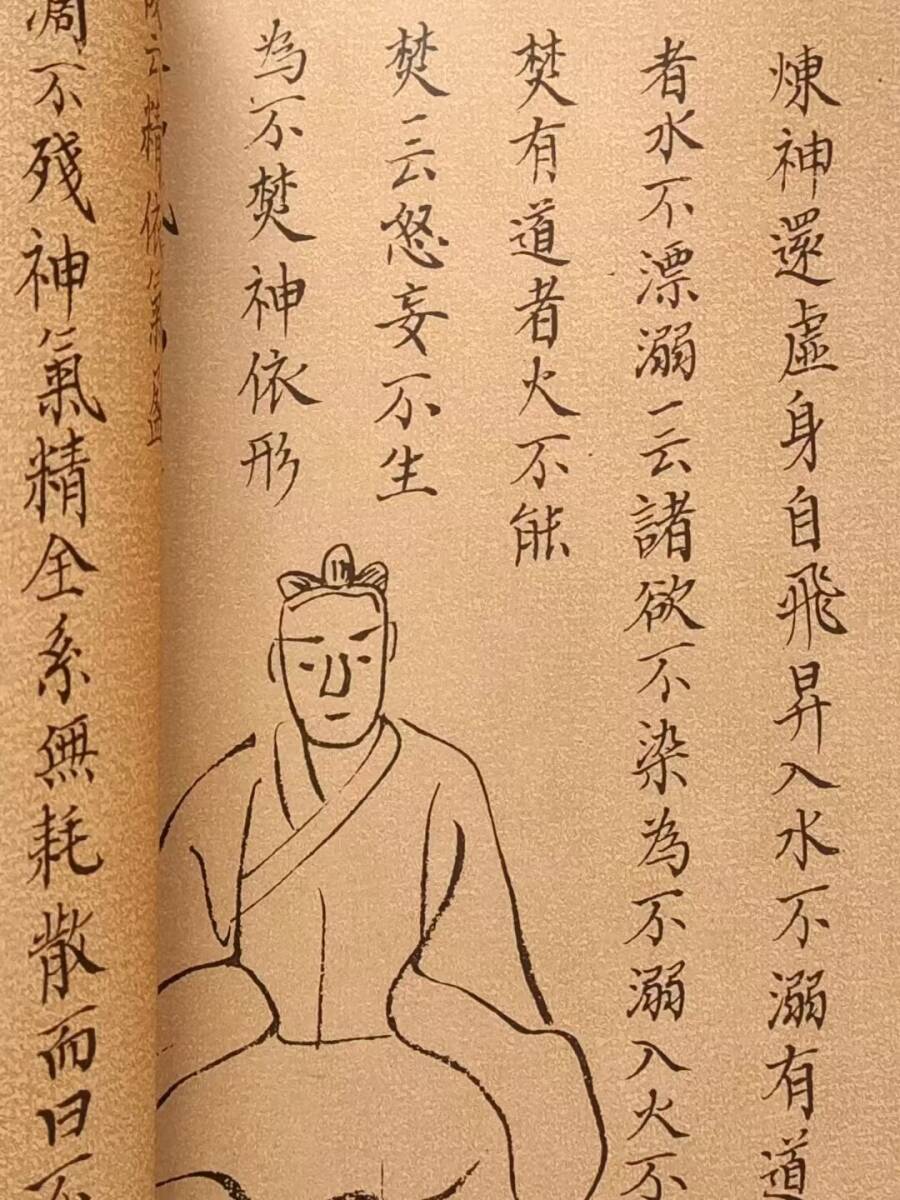 煉神還虛身自飛昇入水不溺有道
者水不漂溺一云諸欲不染為不溺入火不
焚有道者火不能
焚一云怒妄不生
為不焚神依形
云精依氣
凋不殘神氣精全系無耗散而曰不